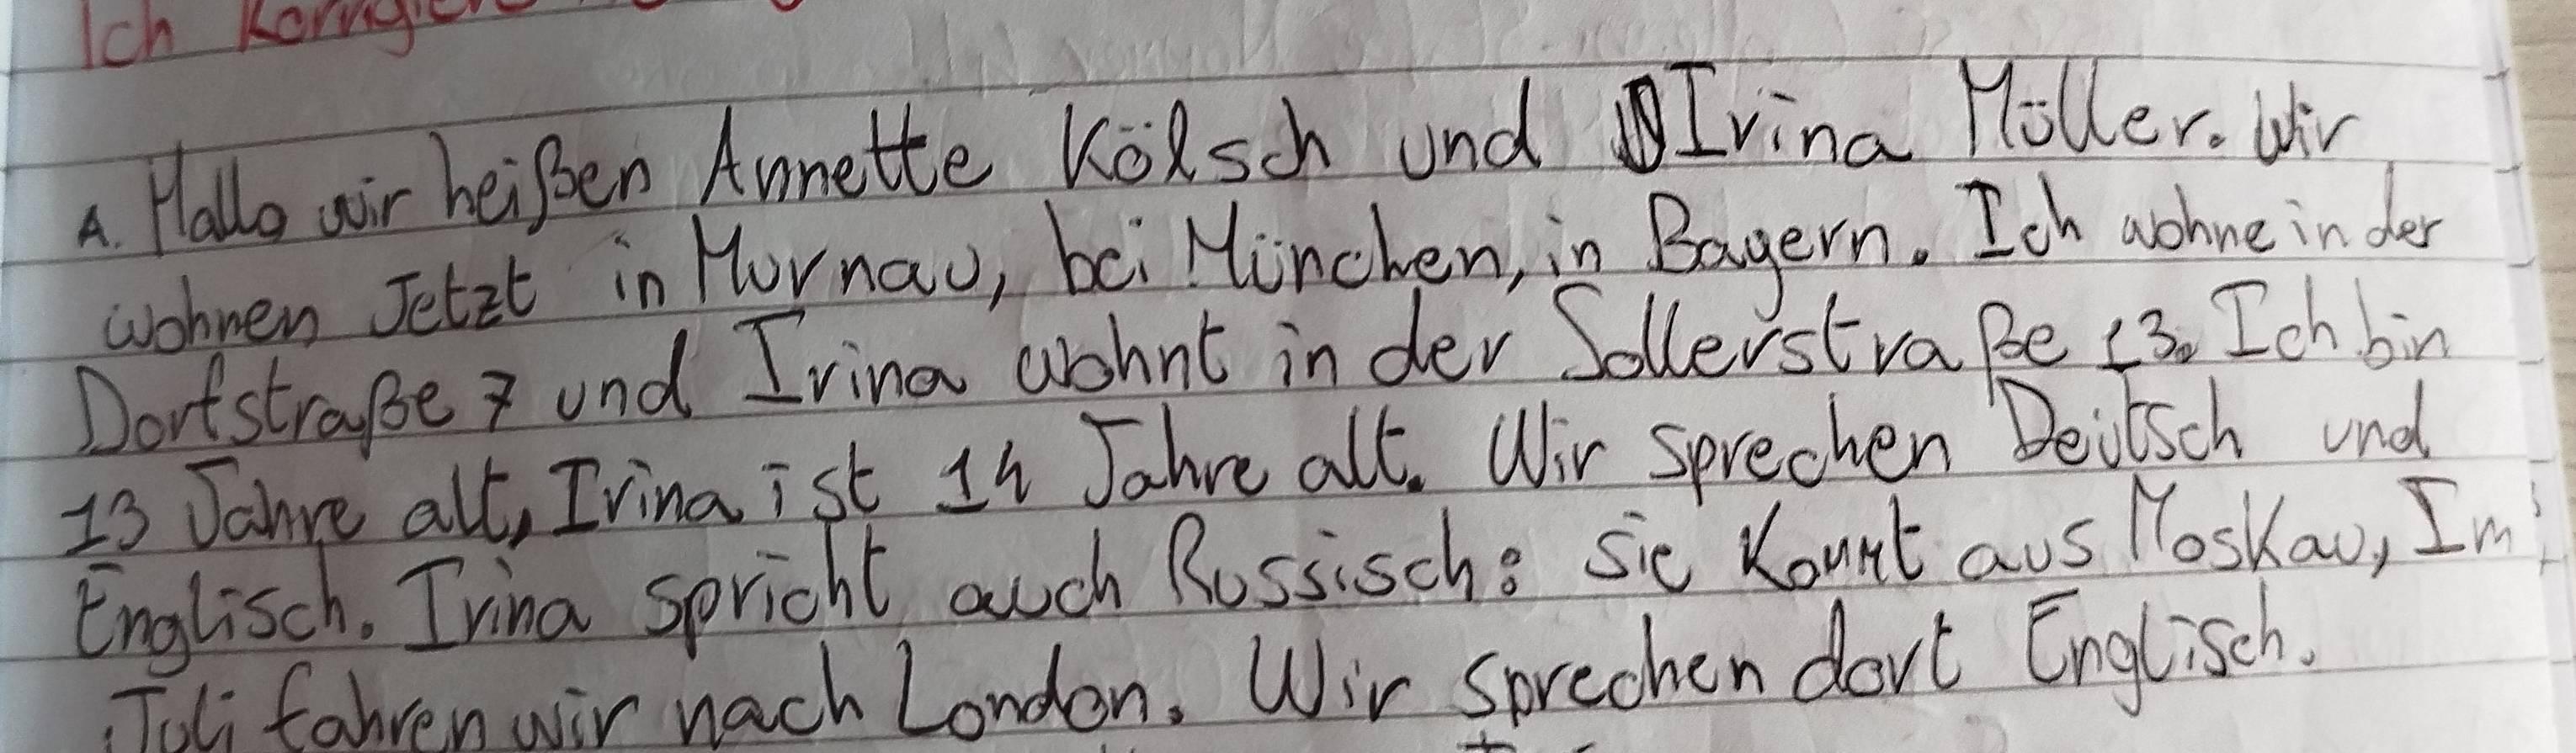 Ich
A. Hallo wir heißen Annette Kölsch und Irina Müller. Wir
wohnen Jetzt in Murnau, bei München, in Bayern. Ich wohne in der
Dorfstraße 7 und Irina wohnt in der Sollerstraße 13. Ich bin
13 Jahre alt, Irina ist 14 Jahre alt. Wir sprechen Deutsch und
Englisch. Irina spricht auch Russisch: Sie Kommt aus Moskau, Im
Juli fahren wir nach London. Wir sprechen dort Englisch.